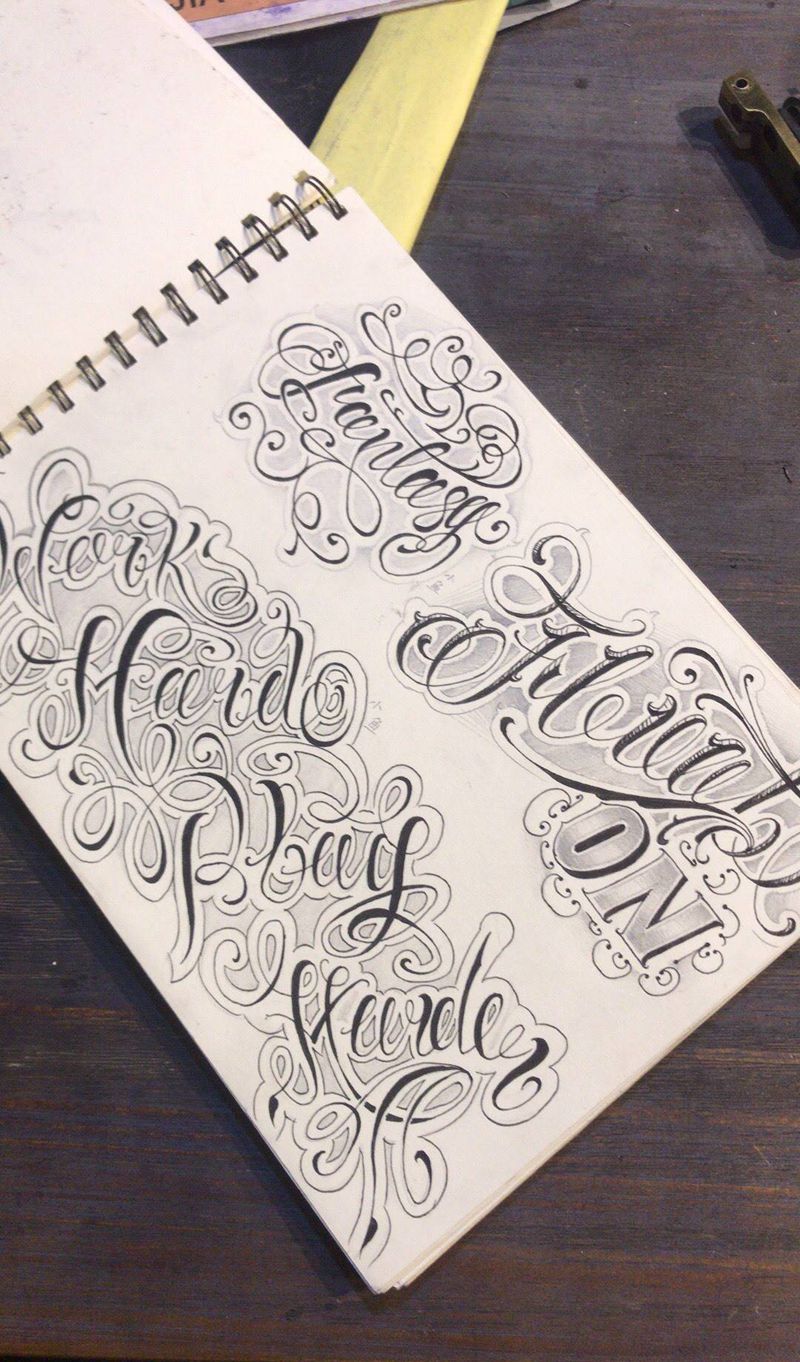 Fantasy
Works
Hard
Play
Harder
ON